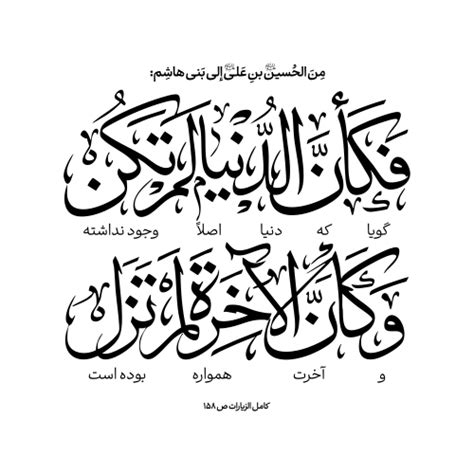 مِنَ الحُسینِ بنِ عَلیٍّ إلی بَنی هاشِم:
فَکَأَنَّ الدُّنیا لَم تَکُن
گویا که دنیا اصلاً وجود نداشته
وَ کَأَنَّ الآخِرَةَ لَم تَزَل
و آخرت همواره بوده است
کامل الزیارات ص ۱۵۸